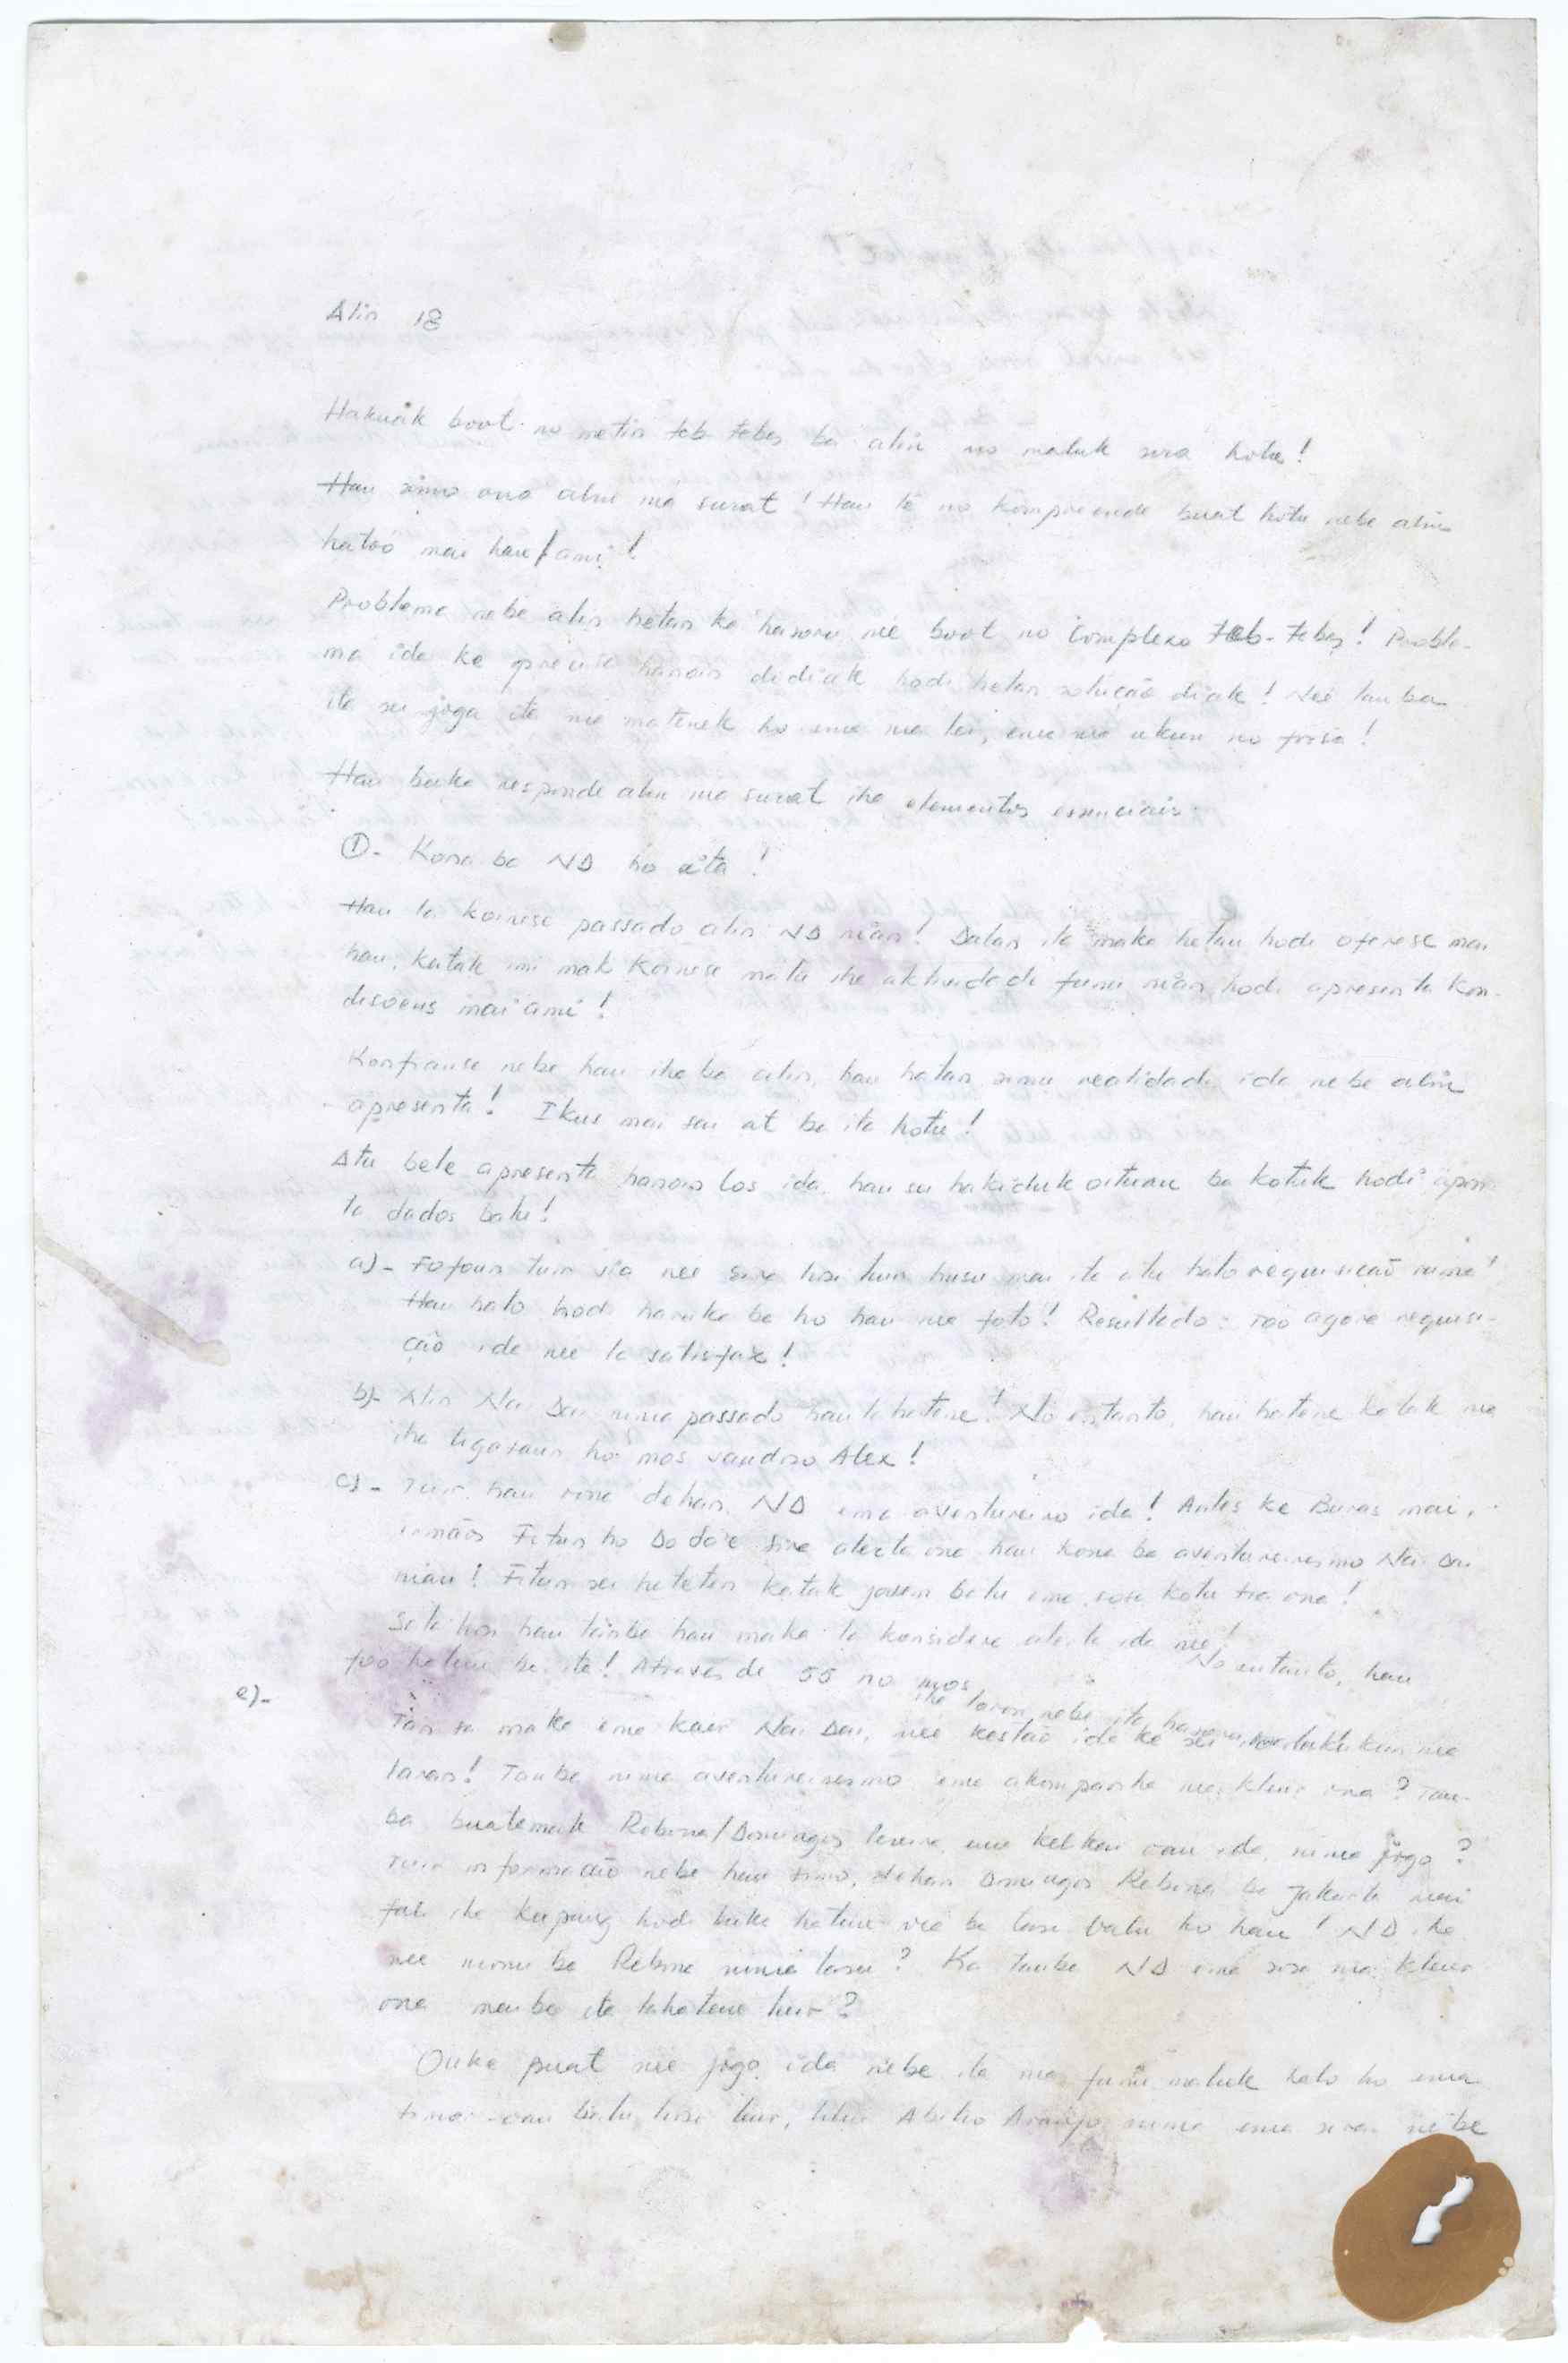 Alin 18
Hakuak boot no metin teb-tebes ba alin no maluk sira hotu!
Hau simu ona alin nia surat! Hau lê no kompreende buat hotu nebe alin
hatoó mai hau/ami!
Problema nebe alin hetan ka hasoru nee boot no complexo teb-tebes! Proble-
ma ida ke precisa hanoin didiak hodi hetan solução diak! Neé tau ba
ita sei joga ita nia matenek ho ema nia lei, ema nia ukun no forsa!
Hau buka responde alin nia surat iha elementos essenciais.
①- Kona ba ND ho ita!
Hau la koinese passado alin ND nian! Dalan ita maka hetan hodi oferese mai
hau, katak imi mak koinese nia iha aktividade funu nian, hodi apresenta kon-
disoens mai ami!
Konfiansa nebe hau iha ba alin, hau hatan simu realidade ida nebe alin
apresenta! Ikus mai sai at ba ita hotu!
Atu bele apresenta hanoin los ida, hau sei hakiduk oituan ba kotuk hodi apresen-
ta dados balu!
a)- Fofoun tuir sia nee sira husi husu mai ita atu halo requisição
Hau halo hodi haruka ba ho hau nia foto! Resultado: too agora requisi-
ção ida nee la satisfaz!
b)- Alin Nai Dai ninia passado hau la hatene! No entanto, hau hatene katak nia
iha ligasaun ho mos saudoso Alex!
c)- Tuir hau rona dehan, ND ema aventureiro ida! Antes ke Buras mai,
irmãos Fitun ho Do do'e sira alerta ona hau kona ba aventureirismo Nai Dai
nian! Fitun sei hateten katak joven balu ema sosa kotu tia ona!
hau tanba hau maka la konsidera alerta ida nee! No entanto, hau
foo hatene ba ita! Através de 55 no mos
iha loron nebe ita hasoru malu
e)- Tan sa maka ema kaer Nai Dai, nee kestão ida ke sei nia
laran! Tauba ninia aventureirismo ema akompanha nia kleur ona? Tau-
ba buatemak Rebina/Domingos Pereira, ema ida, ninia jogo?
Tuir informação nebe hau simu, dehan Domingos Rebina ba Jakarta mai
fali iha Kupang hodi buka hatene nia ba balu ho hau! ND iha
nee monu ba Rebina ninia lasu? Ka tauba ND ema sosa nia kleur
ona mai be ita lahatene kuir?
Ou ke puat nee jogo ida nebe ita nia funu maluk halo ho ema
timor-oan balu husi liur, hanesan Abilio Araújo ninia ema sira nebe